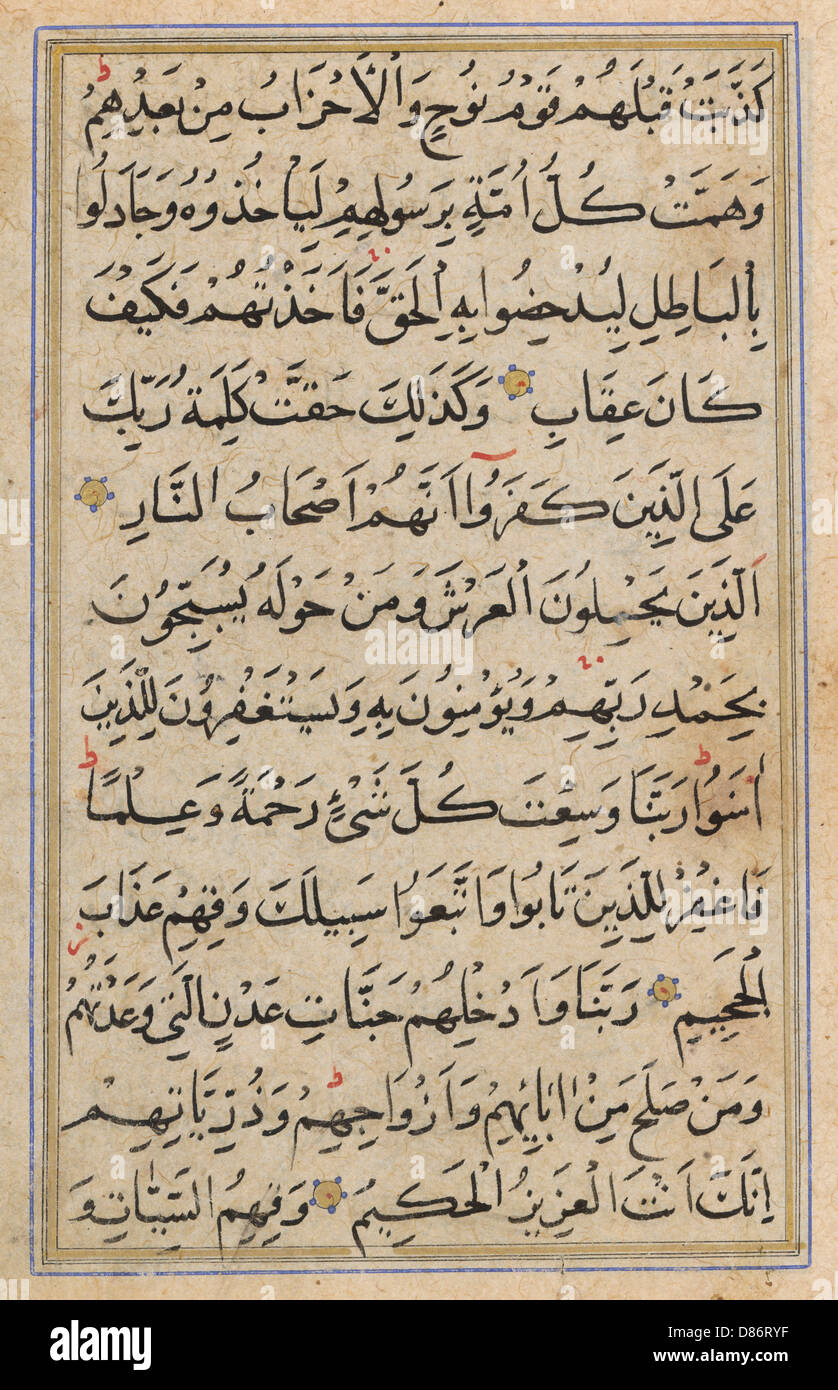 كَذَّبَتْ قَبْلَهُمْ قَوْمُ نُوحٍ وَالْأَحْزَابُ مِنْ بَعْدِهِمْ ط
وَهَمَّتْ كُلُّ أُمَّةٍ بِرَسُولِهِمْ لِيَأْخُذُوهُ وَجَادَلُوا
بِالْبَاطِلِ لِيُدْحِضُوا بِهِ الْحَقَّ فَأَخَذْتُهُمْ فَكَيْفَ
كَانَ عِقَابِ وَكَذَلِكَ حَقَّتْ كَلِمَةُ رَبِّكَ
عَلَى الَّذِينَ كَفَرُوا أَنَّهُمْ أَصْحَابُ النَّارِ
الَّذِينَ يَحْمِلُونَ الْعَرْشَ وَمَنْ حَوْلَهُ يُسَبِّحُونَ
بِحَمْدِ رَبِّهِمْ وَيُؤْمِنُونَ بِهِ وَيَسْتَغْفِرُونَ لِلَّذِينَ
اٰمَنُوا ط رَبَّنَا وَسِعْتَ كُلَّ شَيْءٍ رَحْمَةً وَعِلْمًا ط
فَاغْفِرْ لِلَّذِينَ تَابُوا وَاتَّبَعُوا سَبِيلَكَ وَقِهِمْ عَذَابَ
الْجَحِيمِ رَبَّنَا وَأَدْخِلْهُمْ جَنَّاتِ عَدْنٍ الَّتِي وَعَدْتَهُمْ
وَمَنْ صَلَحَ مِنْ اٰبَائِهِمْ وَأَزْوَاجِهِمْ ط وَذُرِّيَّاتِهِمْ
إِنَّكَ أَنْتَ الْعَزِيزُ الْحَكِيمُ وَقِهِمُ السَّيِّئَاتِ وَ
alamy
alamy
alamy
Image ID: D86RYF
www.alamy.com